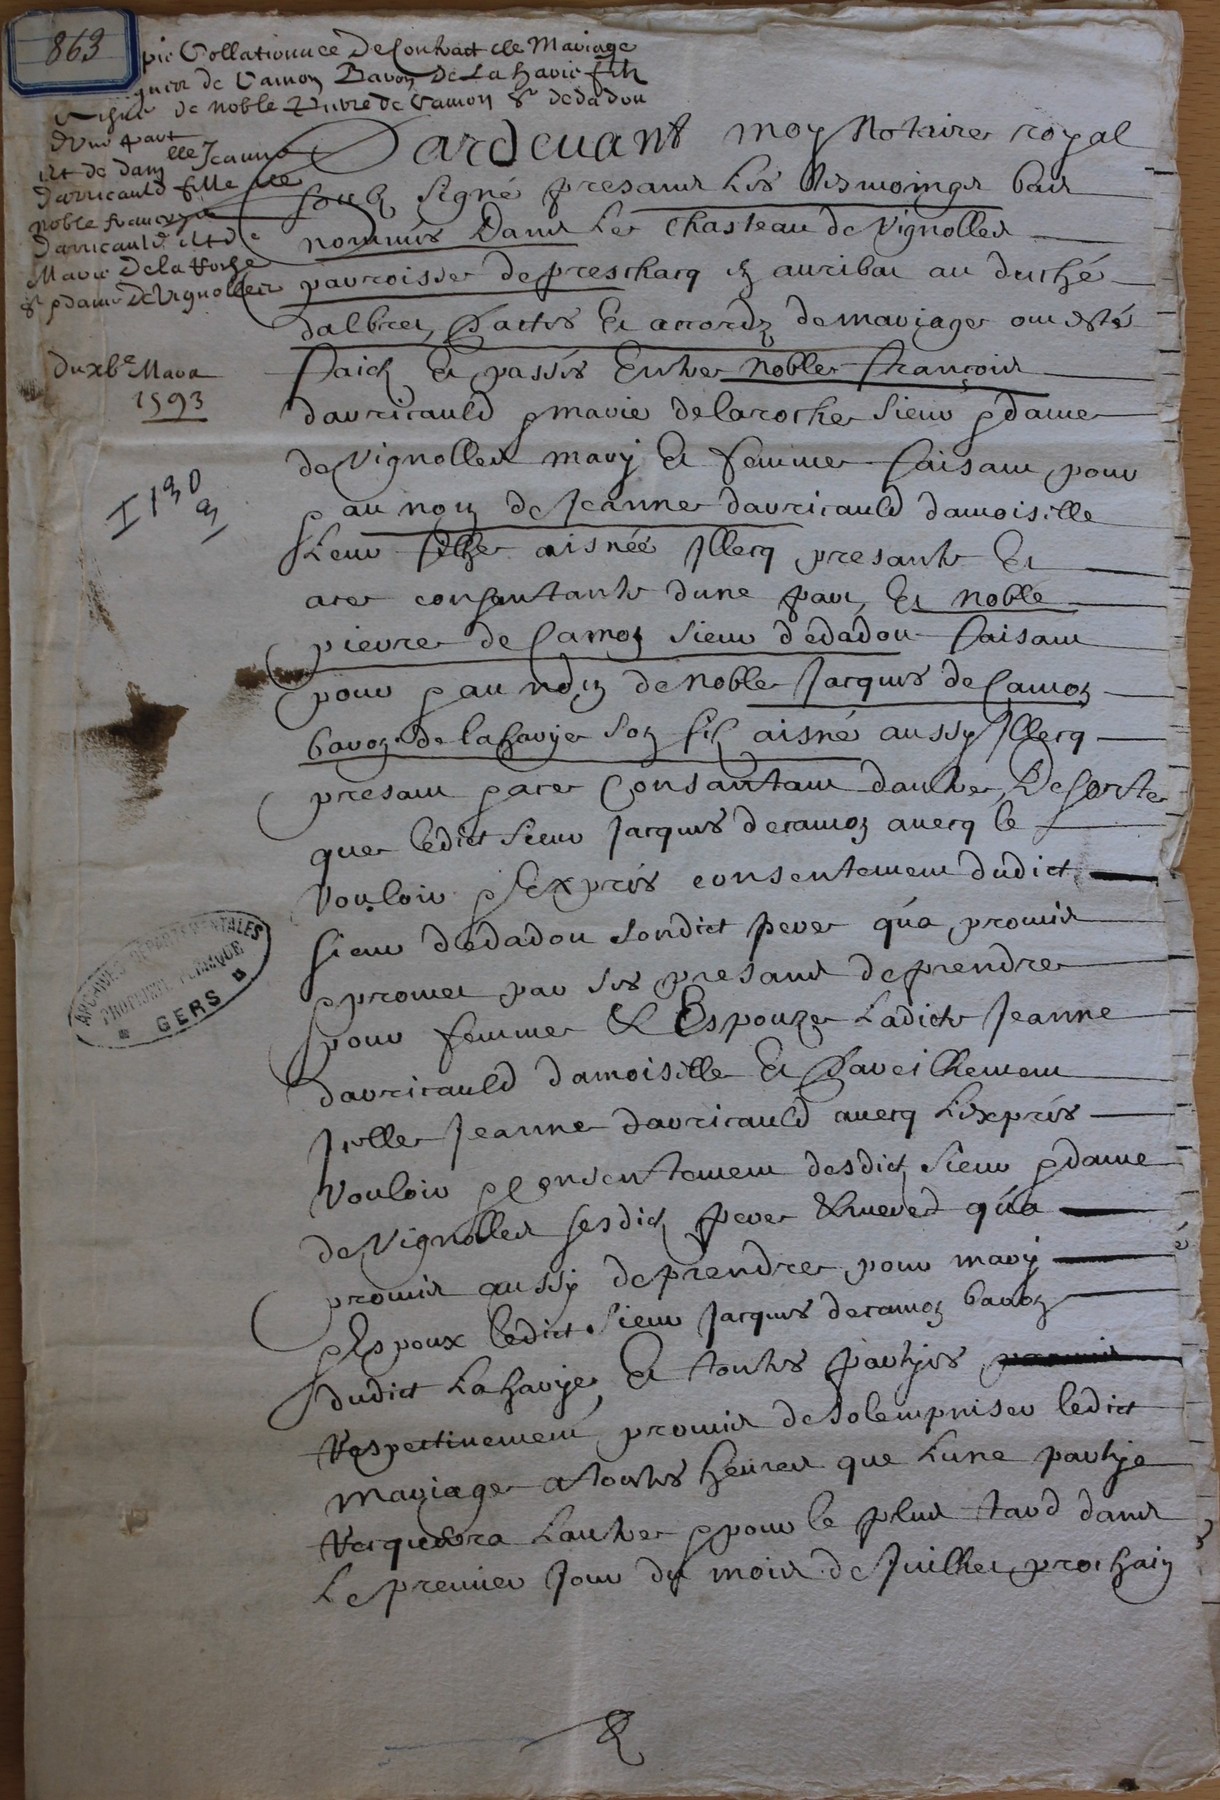 863
pie Collationnee De Contract de Mariage
gneur de Camon Baron De La havie fils
de noble Pierre de Camon Sr dedadou
dune part
et de damlle Jeanne
Darricauld fille de
noble francoys
Darricauld et de
Marie De la Roche
Sr & dame De Vignolles
du xve Mars
1593
I 130
3
Pardeuant moy Notaire royal
soubz signé presans les tesmoings bas
nommés Dans le chasteau de Vignolles
parroisse de prescharq et auribat au duché
dalbret, Pactes Et accordz de mariage ont estés
faictz Et passés Entre noble françois
darricauld & marie de laroche sieur & dame
de Vignolles mary Et femme faisant pour
& au nom de Jeanne darricauld damoiselle
Leur fille aisnée Illecq presante Et
ace consentante dune part, Et noble
pierre de Camon sieur dédadou faisant
pour & au nom de noble Jacques de Camon
baron de lahavye son filz aisné aussy Illecq
presant & ace Consantant dautre, De sorte
que ledict sieur Jacques de camon auecq le
Vouloir & Expres consentement dudict
sieur dédadou sondict pere qua promis
& promet par ses presans de prendre
pour femme & Espouze Ladicte Jeanne
darricauld damoiselle Et Pareilhement
Icelle Jeanne darricauld auecq L'expres
Vouloir & Consentement desdictz sieur & dame
de Vignolles sesdictz pere & mere qua
promis aussy de prendre pour mary
& Espoux ledict sieur Jacques de camon baron
dudict Lahavye, Et toutes partyes
Respectiuement promis de solempniser ledict
Mariage a toutes heures que Lune partye
Requerra Lautre & pour le plus tard dans
Le premier Jour du mois de Juilhet prochain
ARCHIVES DEPARTEMENTALES
PROPRIETE PUBLIQUE
GERS